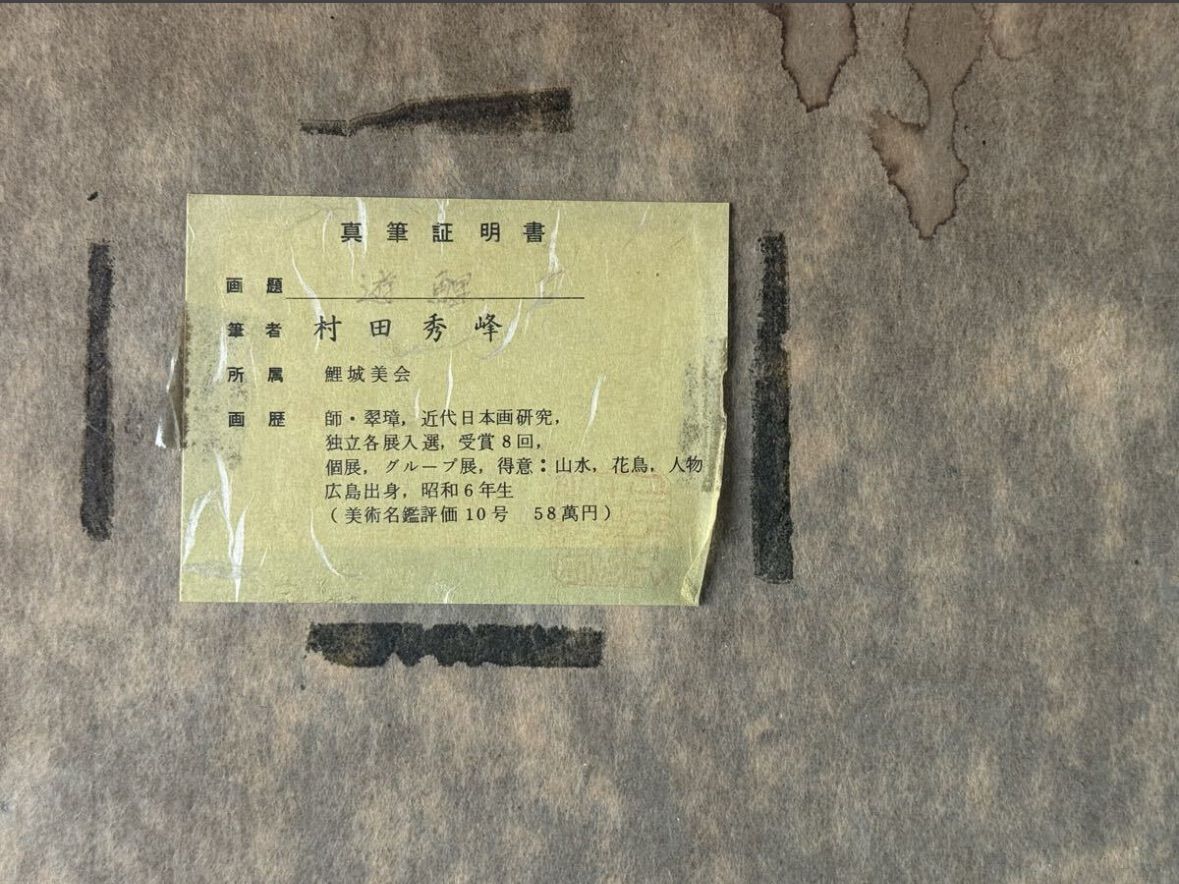 真筆証明書
画題 遊鯉
筆者 村田秀峰
所属 鯉城美会
画歴 師・翠璋，近代日本画研究，
独立各展入選，受賞8回，
個展，グループ展，得意：山水，花鳥，人物
広島出身，昭和6年生
（美術名鑑評価10号 58萬円）